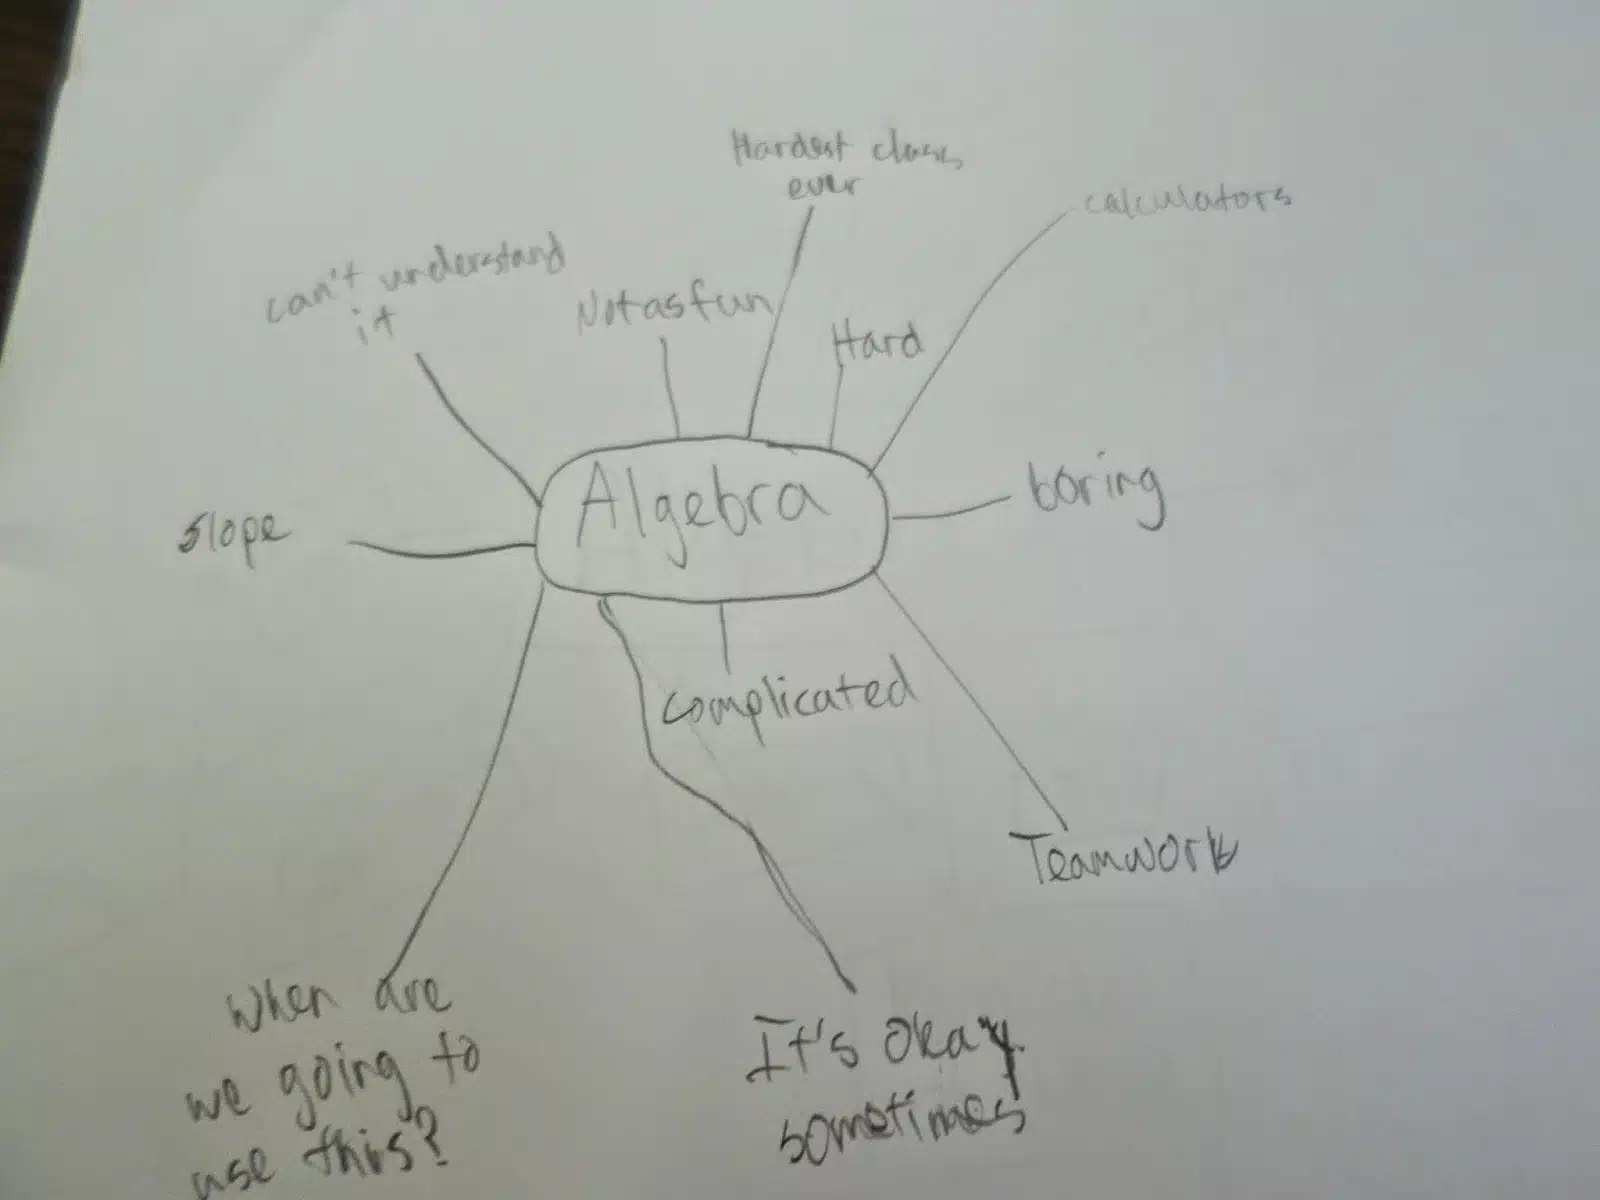 Hardest class
ever
calculators
can't understand
it
Not as fun
Hard
Algebra
boring
slope
complicated
Teamwork
when are
we going to
use this?
It's okay
sometimes